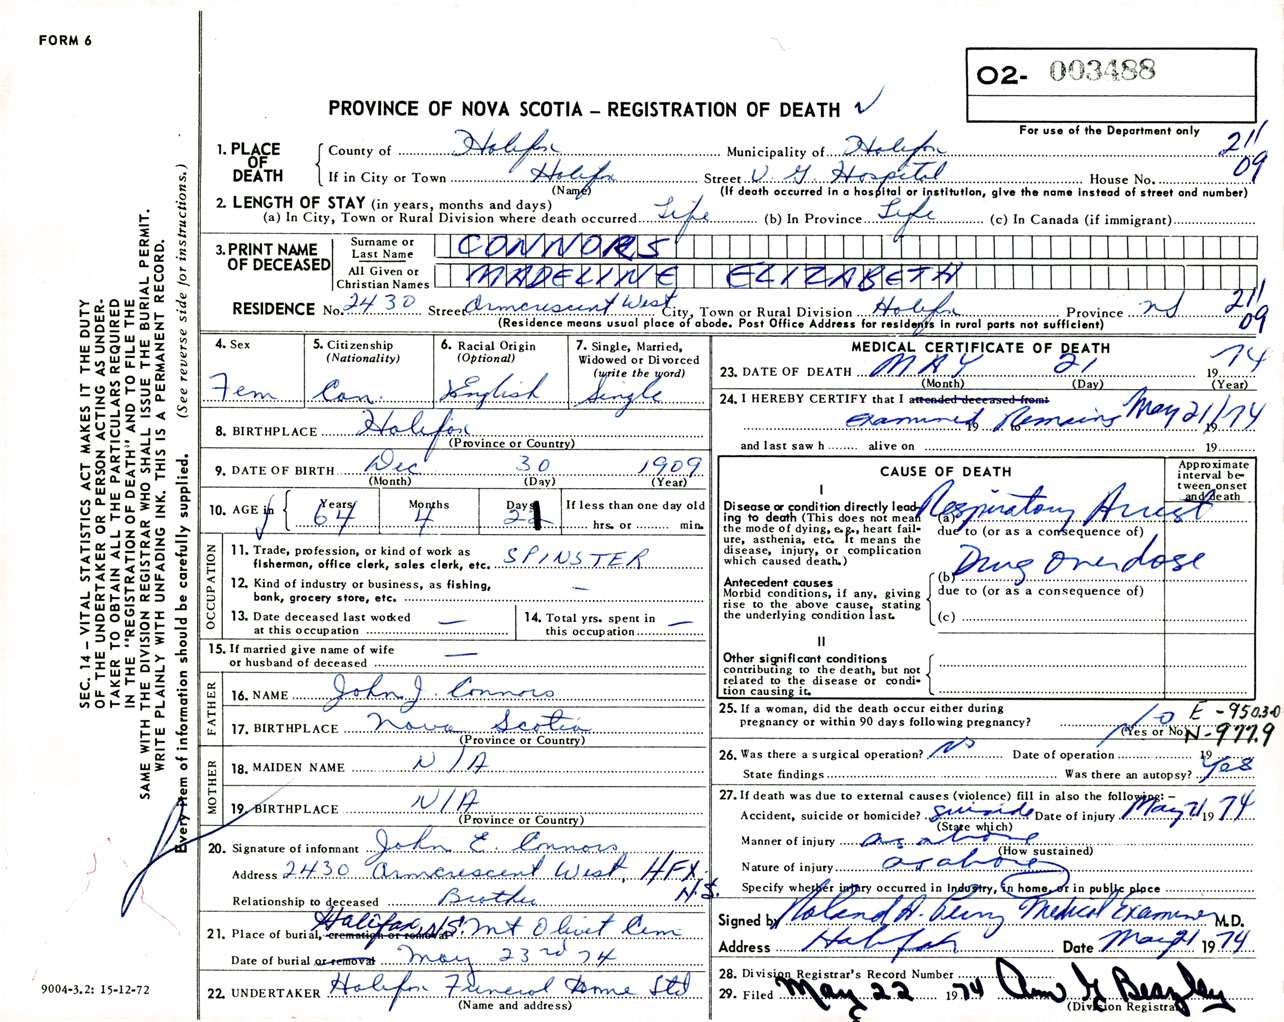 FORM 6
O2- 003488
For use of the Department only
PROVINCE OF NOVA SCOTIA – REGISTRATION OF DEATH ✓
211
09
1. PLACE OF DEATH
County of Halifax Municipality of Halifax
If in City or Town Halifax Street V. G. Hospital House No.
(Name) (If death occurred in a hospital or institution, give the name instead of street and number)
2. LENGTH OF STAY (in years, months and days)
(a) In City, Town or Rural Division where death occurred Life (b) In Province Life (c) In Canada (if immigrant)
3. PRINT NAME OF DECEASED
Surname or Last Name CONNORS
All Given or Christian Names MADELINE ELIZABETH
RESIDENCE No. 2430 Street Armcrescent West City, Town or Rural Division Halifax Province NS
211
09
(Residence means usual place of abode. Post Office Address for residents in rural parts not sufficient)
4. Sex
Fem
5. Citizenship
(Nationality)
Can.
6. Racial Origin
(Optional)
English
7. Single, Married,
Widowed or Divorced
(write the word)
Single
8. BIRTHPLACE Halifax
(Province or Country)
9. DATE OF BIRTH Dec 30 1909
(Month) (Day) (Year)
10. AGE in Years 64 Months 4 Days 21 If less than one day old
hrs. or min.
OCCUPATION
11. Trade, profession, or kind of work as
fisherman, office clerk, sales clerk, etc. SPINSTER
12. Kind of industry or business, as fishing,
bank, grocery store, etc. —
13. Date deceased last worked
at this occupation —
14. Total yrs. spent in
this occupation —
15. If married give name of wife
or husband of deceased —
FATHER
16. NAME John J. Connors
17. BIRTHPLACE Nova Scotia
(Province or Country)
MOTHER
18. MAIDEN NAME N/A
19. BIRTHPLACE N/A
(Province or Country)
20. Signature of informant John E. Connors
Address 2430 Armcrescent West, HFX. N.S.
Relationship to deceased Brother
21. Place of burial, cremation or removal Halifax N.S. Mt Olivet Cem
Date of burial or removal May 23rd 74
22. UNDERTAKER Halifax Funeral Home Ltd
(Name and address)
MEDICAL CERTIFICATE OF DEATH
23. DATE OF DEATH MAY 21 1974
(Month) (Day) (Year)
24. I HEREBY CERTIFY that I attended deceased from:
examined 19 to Remains May 21/74 19
and last saw h alive on 19
CAUSE OF DEATH
Approximate
interval be-
tween onset
and death
I
Disease or condition directly lead-
ing to death (This does not mean
the mode of dying, e.g., heart fail-
ure, asthenia, etc. It means the
disease, injury, or complication
which caused death.)
(a) Respiratory Arrest
due to (or as a consequence of)
(b) Drug overdose
Antecedent causes
Morbid conditions, if any, giving
rise to the above cause, stating
the underlying condition last.
due to (or as a consequence of)
(c)
II
Other significant conditions
contributing to the death, but not
related to the disease or condi-
tion causing it.
25. If a woman, did the death occur either during
pregnancy or within 90 days following pregnancy? No
(Yes or No)
E-950.3-0
N-977.9
26. Was there a surgical operation? No Date of operation 19
State findings Was there an autopsy? Yes
27. If death was due to external causes (violence) fill in also the following: –
Accident, suicide or homicide? suicide Date of injury May 21 1974
(State which)
Manner of injury as above
(How sustained)
Nature of injury as above
Specify whether injury occurred in Industry, in home, or in public place
Signed by Roland A. Perry Medical Examiner M.D.
Address Halifax Date May 21 1974
28. Division Registrar's Record Number
29. Filed May 22 1974 Ann G Beazley
(Division Registrar)
SEC. 14 – VITAL STATISTICS ACT MAKES IT THE DUTY
OF THE UNDERTAKER OR PERSON ACTING AS UNDER-
TAKER TO OBTAIN ALL THE PARTICULARS REQUIRED
IN THE "REGISTRATION OF DEATH" AND TO FILE THE
SAME WITH THE DIVISION REGISTRAR WHO SHALL ISSUE THE BURIAL PERMIT.
WRITE PLAINLY WITH UNFADING INK. THIS IS A PERMANENT RECORD.
Every item of information should be carefully supplied. (See reverse side for instructions.)
9004-3.2: 15-12-72